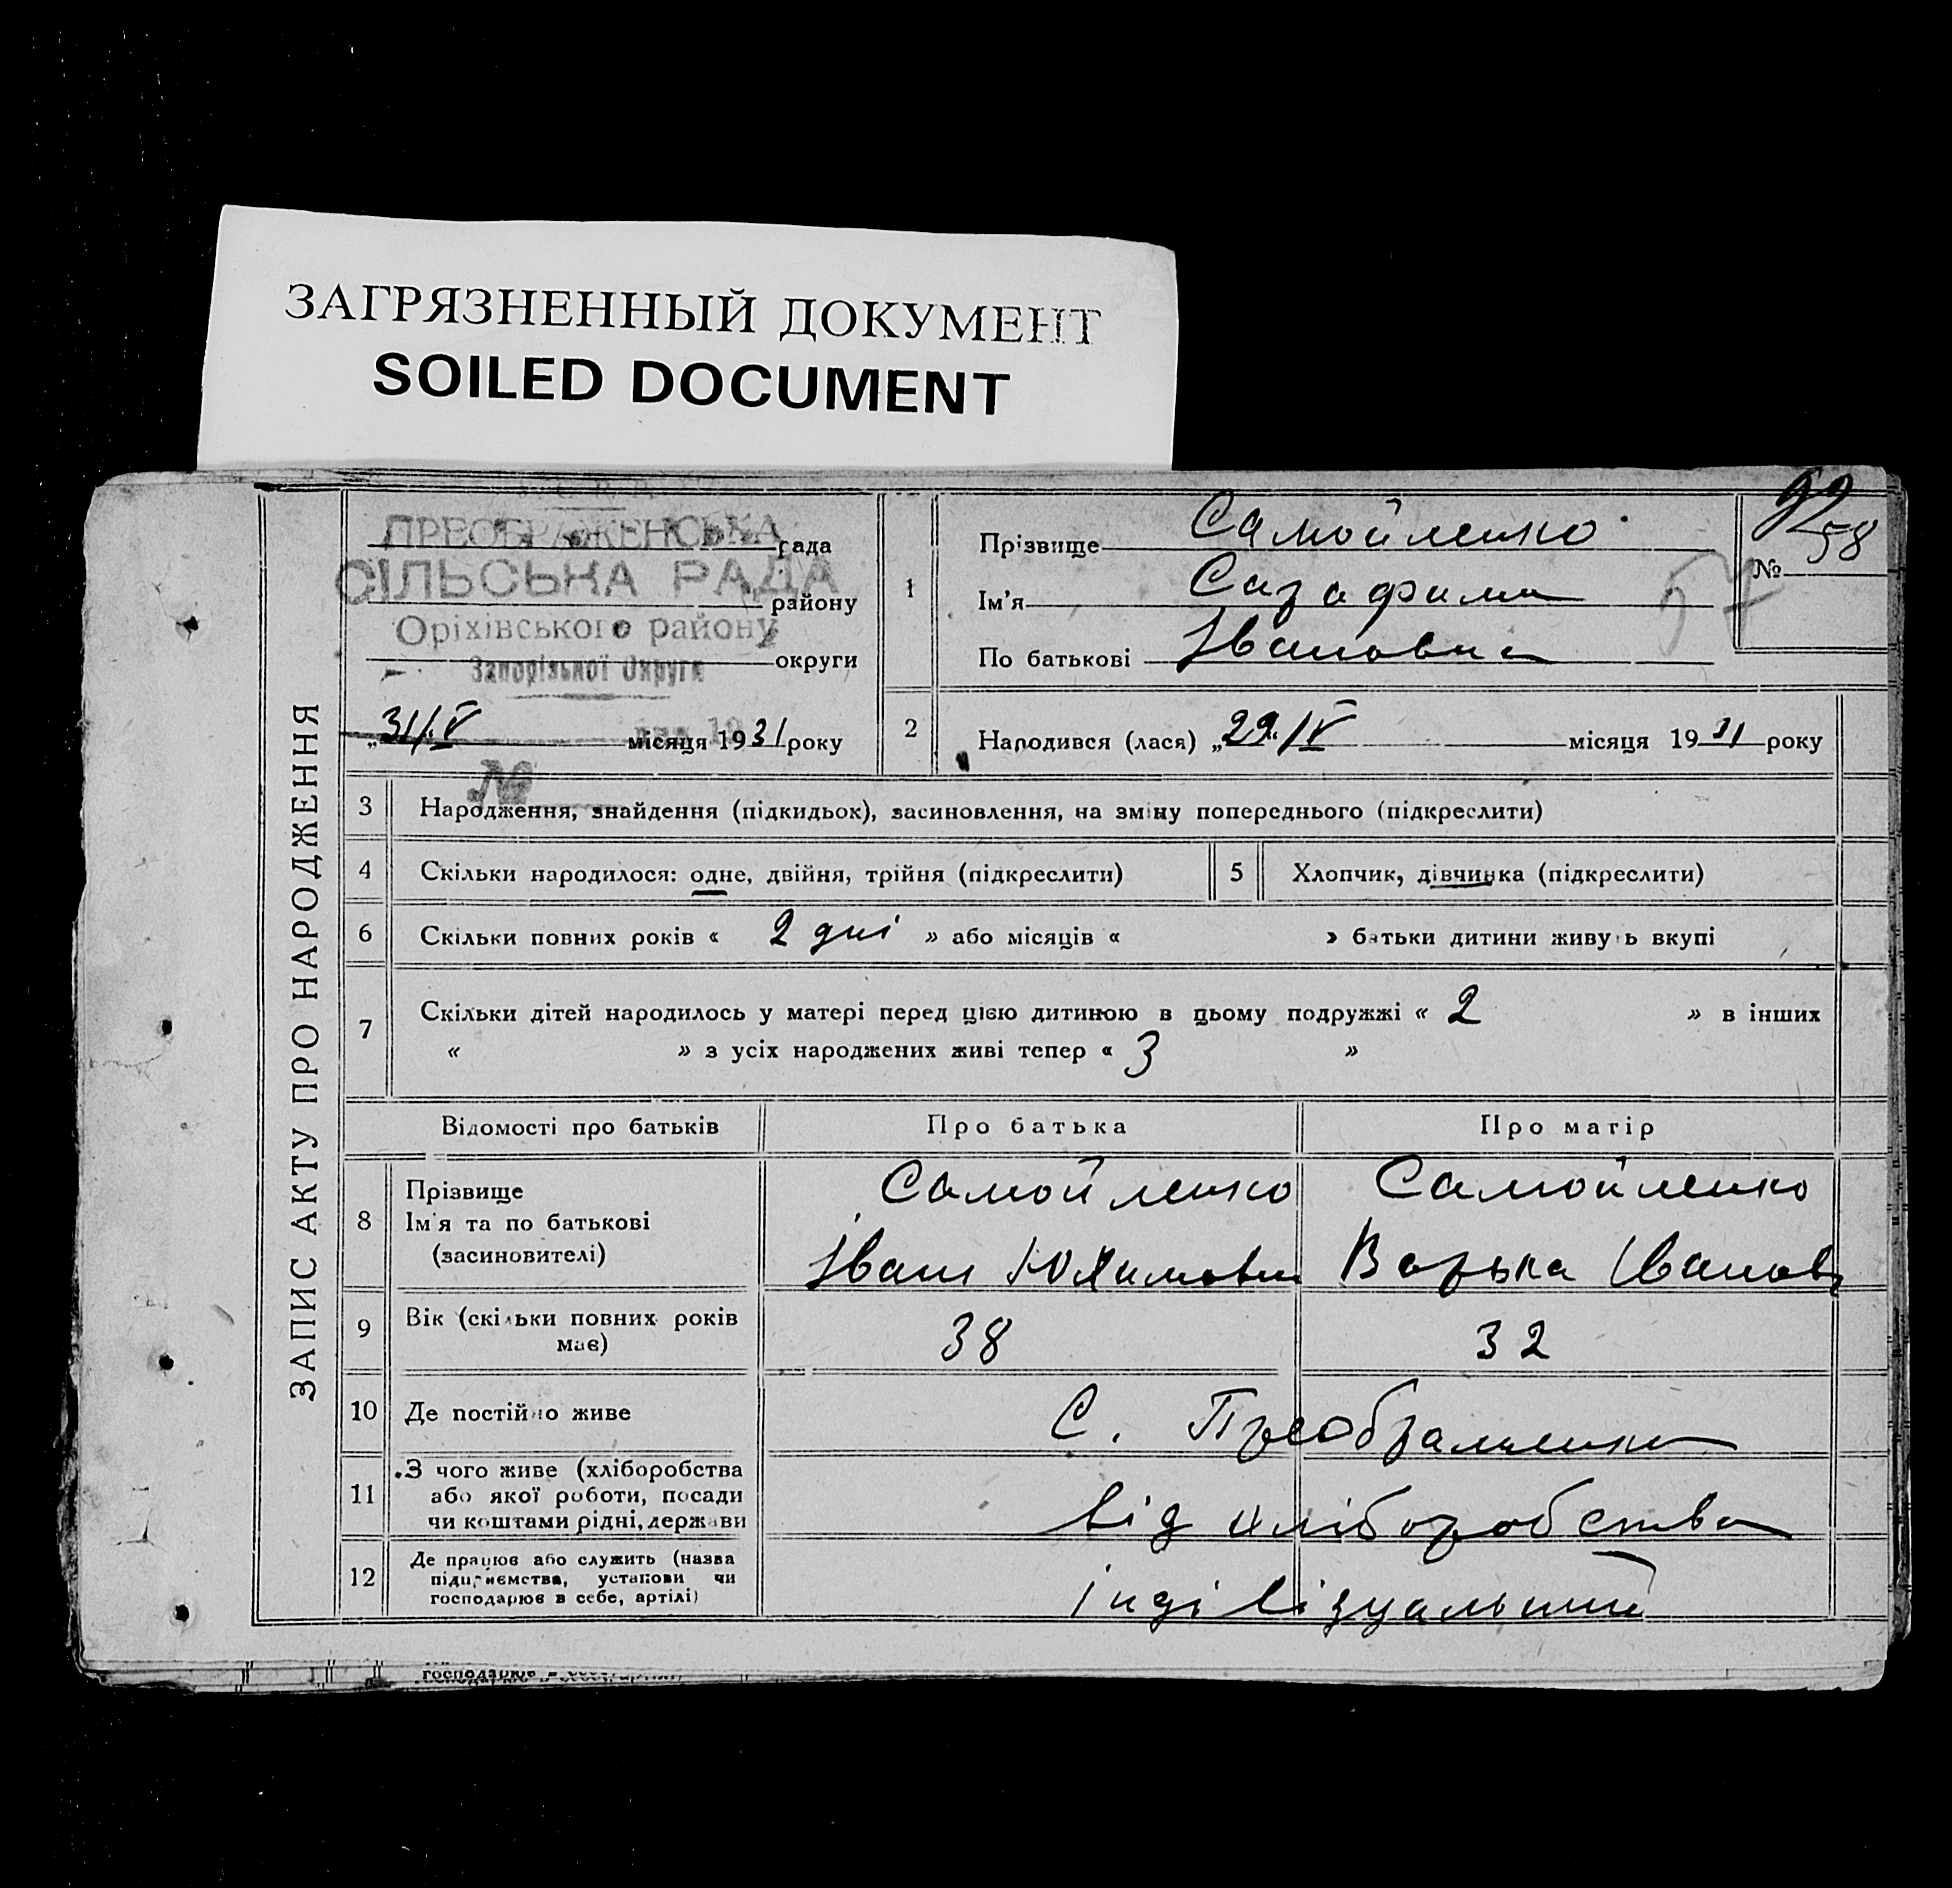 ЗАГРЯЗНЕННЫЙ ДОКУМЕНТ
SOILED DOCUMENT
ЗАПИС АКТУ ПРО НАРОДЖЕННЯ
ПРЕОБРАЖЕНСЬКА рада
СІЛЬСЬКА РАДА
району
Оріхівського району
округи
Запорізької Округи
„31/V місяця 1931 року
№
1
Прізвище Самойленко
Ім'я Сарафима
По батькові Івановна
№ 58
57
2 Народився (лася) „29/IV місяця 1931 року
3 Народження, знайдення (підкидьок), засиновлення, на зміну попереднього (підкреслити)
4 Скільки народилося: одне, двійня, трійня (підкреслити) 5 Хлопчик, дівчинка (підкреслити)
6 Скільки повних років « 2 дні » або місяців « » батьки дитини живуть вкупі
7 Скільки дітей народилось у матері перед цією дитиною в цьому подружжі « 2 » в інших
« » з усіх народжених живі тепер « 3 »
Відомості про батьків Про батька Про матір
8 Прізвище Самойленко Самойленко
Ім'я та по батькові
(засиновителі) Іван Юхимович Варька Іванов
9 Вік (скільки повних років має) 38 32
10 Де постійно живе С. Преображенка
11 З чого живе (хліборобства
або якої роботи, посади
чи коштами рідні, держави від хліборобства
12 Де працює або служить (назва
підприємства, установи чи
господарює в себе, артілі) індівізуальний